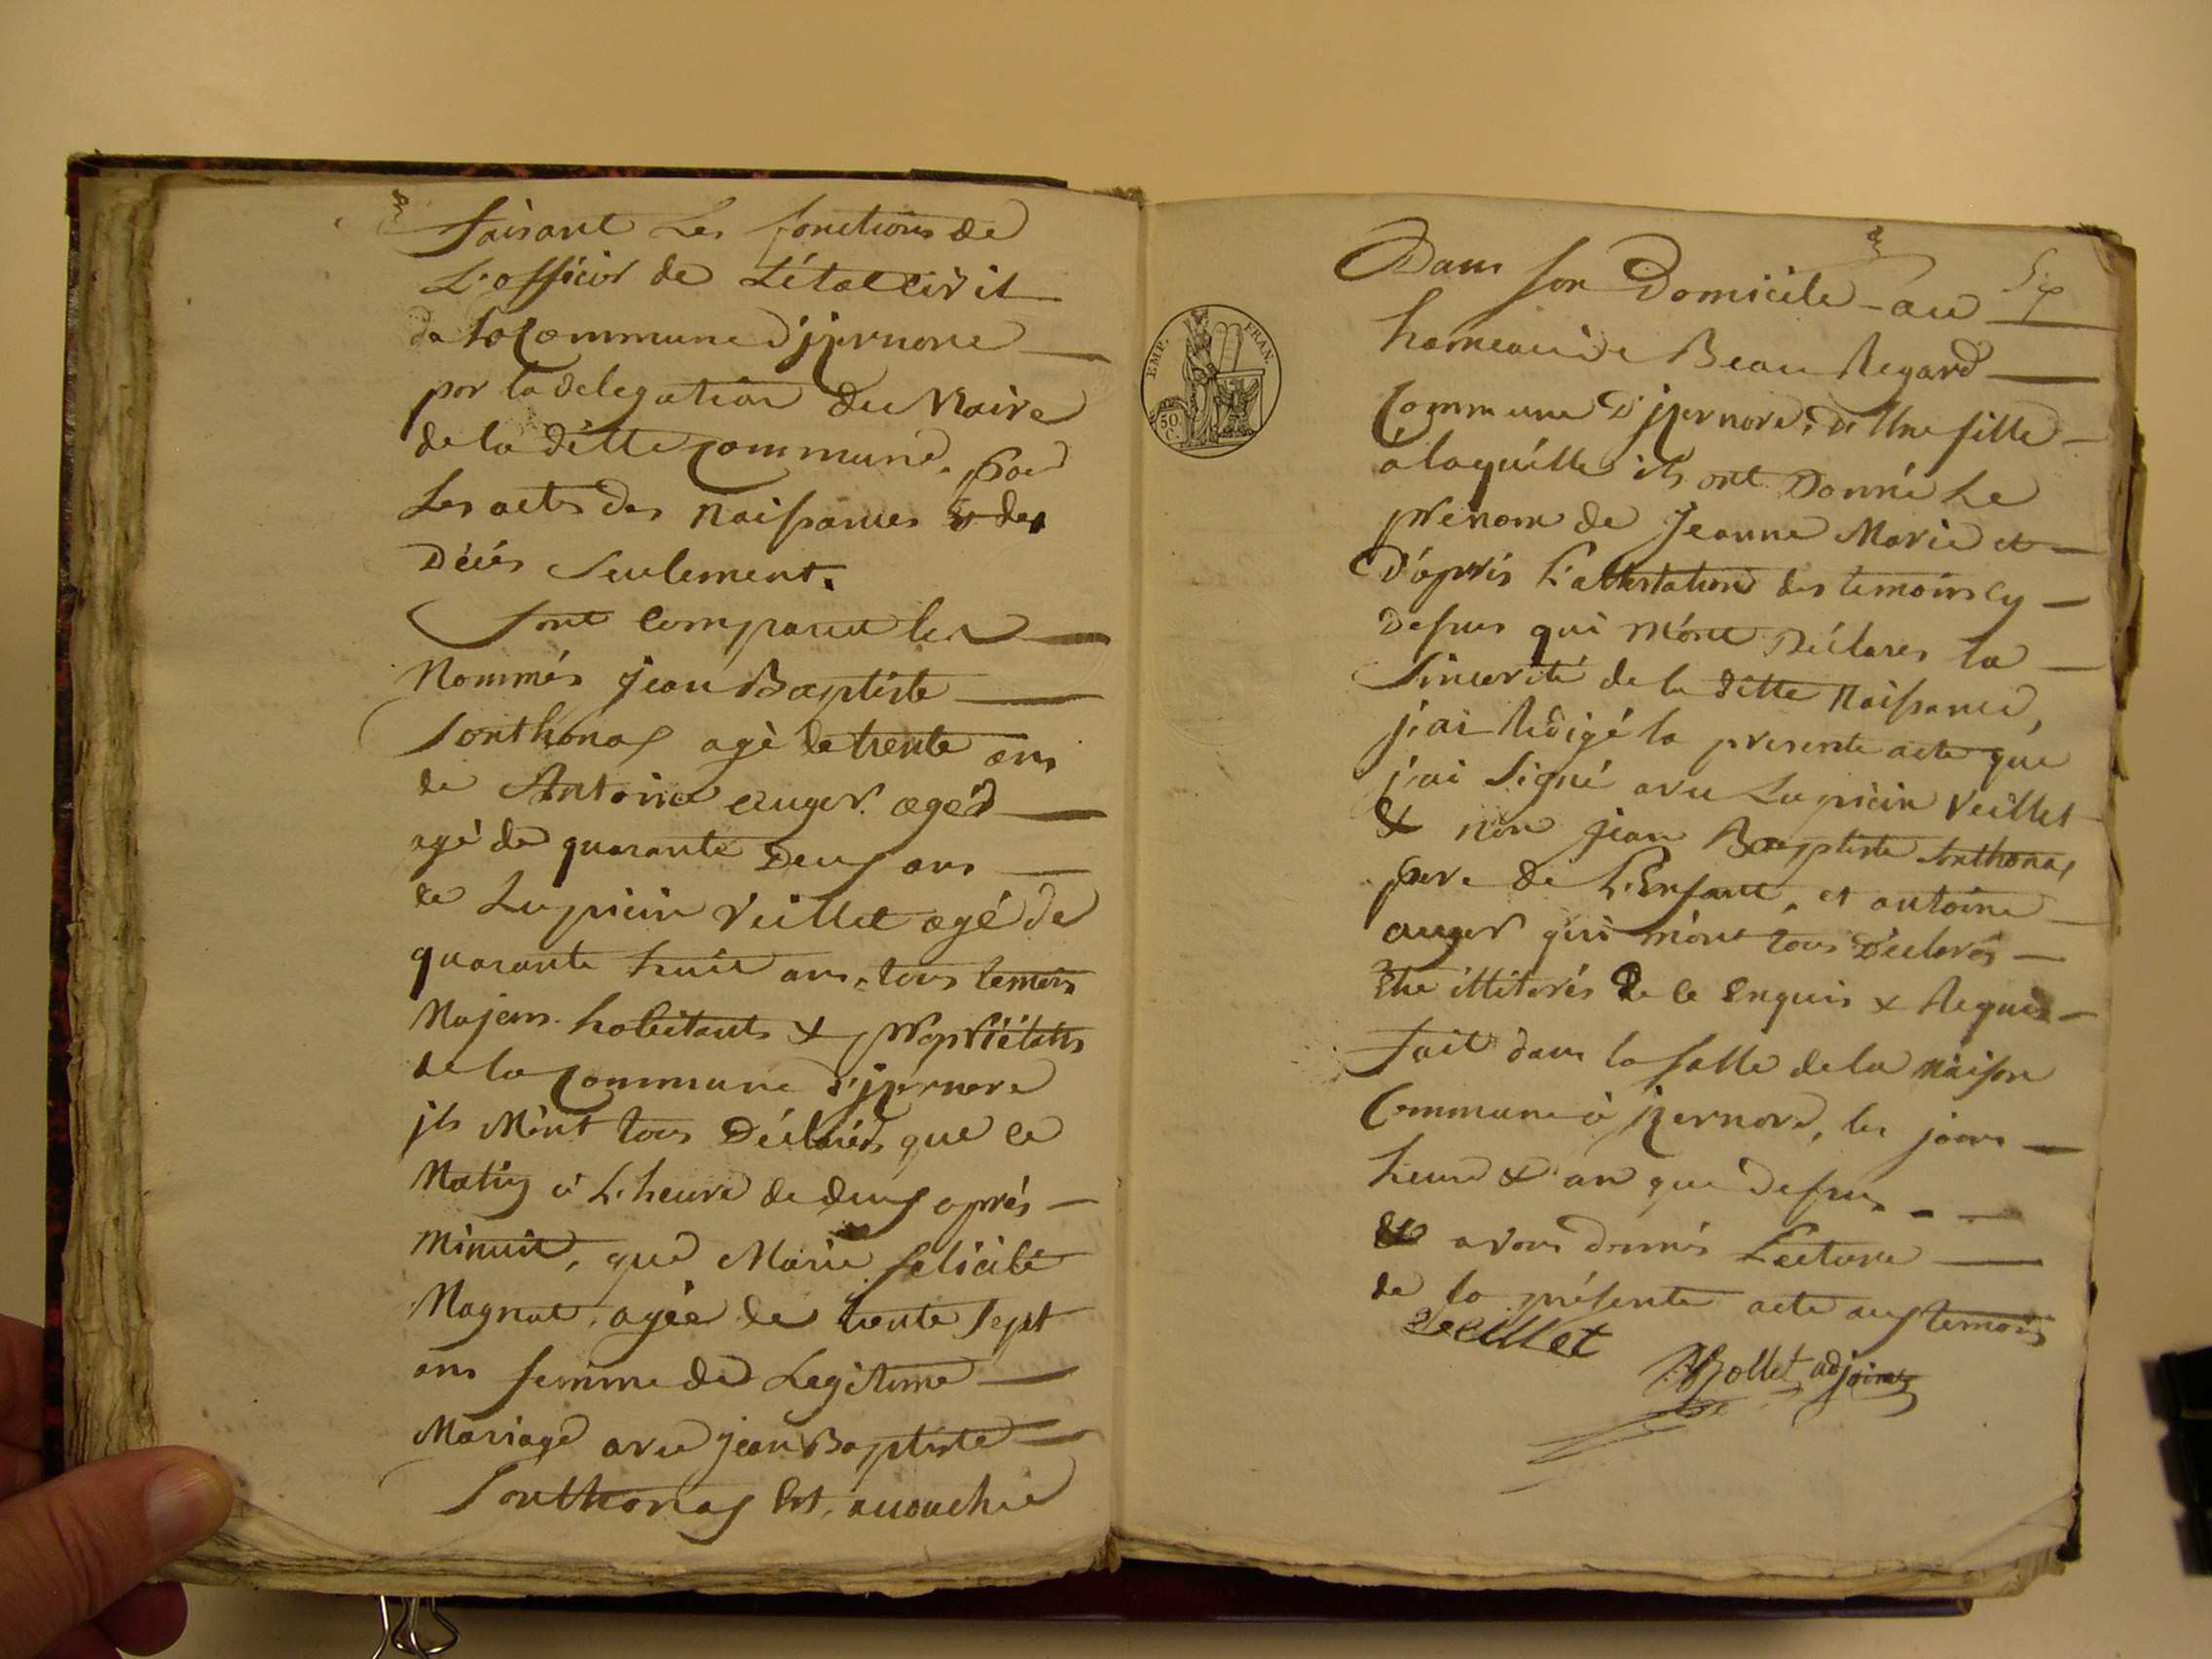 faisant Les fonctions de
L'officier de L'état civil
de la Commune d'jzernore
par la delegation du Maire
de la ditte Commune. pour
Les actes des Naissances & des
Décés Seulement.
Sont comparu les
Nommés jean Baptiste
Sonthonas agé de trente ans
de Antoine auger agéd
agé de quarante Deux ans
de Lupicin Veillet agé de
quarante huit ans, tous temoin
Majeurs habitants & Propriétaires
de la Commune d'jzernore
jls M'ont tous Déclarés que ce
Matin à L'heure de deux aprés
Minuit, que Marie felicité
Magnat, agée de trente Sept
ans femme de Legitime
Mariage avec jean Baptiste
Sonthonas Est, acouchée
Dans son Domicile au
hameau de Beau Regard
Commune D'jzernore, D'Une fille
a laquélle ils ont Donné Le
prenom de Jeanne Marie et
D'aprés L'attestation des temoins cy
Dessus qui M'ont Déclarés la
Sincerité de la ditte Naissance,
j'ai Redigé la presente acte que
j'ai Signé avec Lupicin Veillet
& non jean Baptiste Sonthonas
pere de L'Enfant, et antoine
auger qui m'ont tous Déclarés
Etre illiterés de ce Enquis & Requis
fait dans la salle de la Maison
Commune à jzernore, les jours
heure & an que dessus
& avons donnés Lecture
de la présente acte aux temoins
Veillet
Bollet adjoint
EMP. FRAN.
50 C.